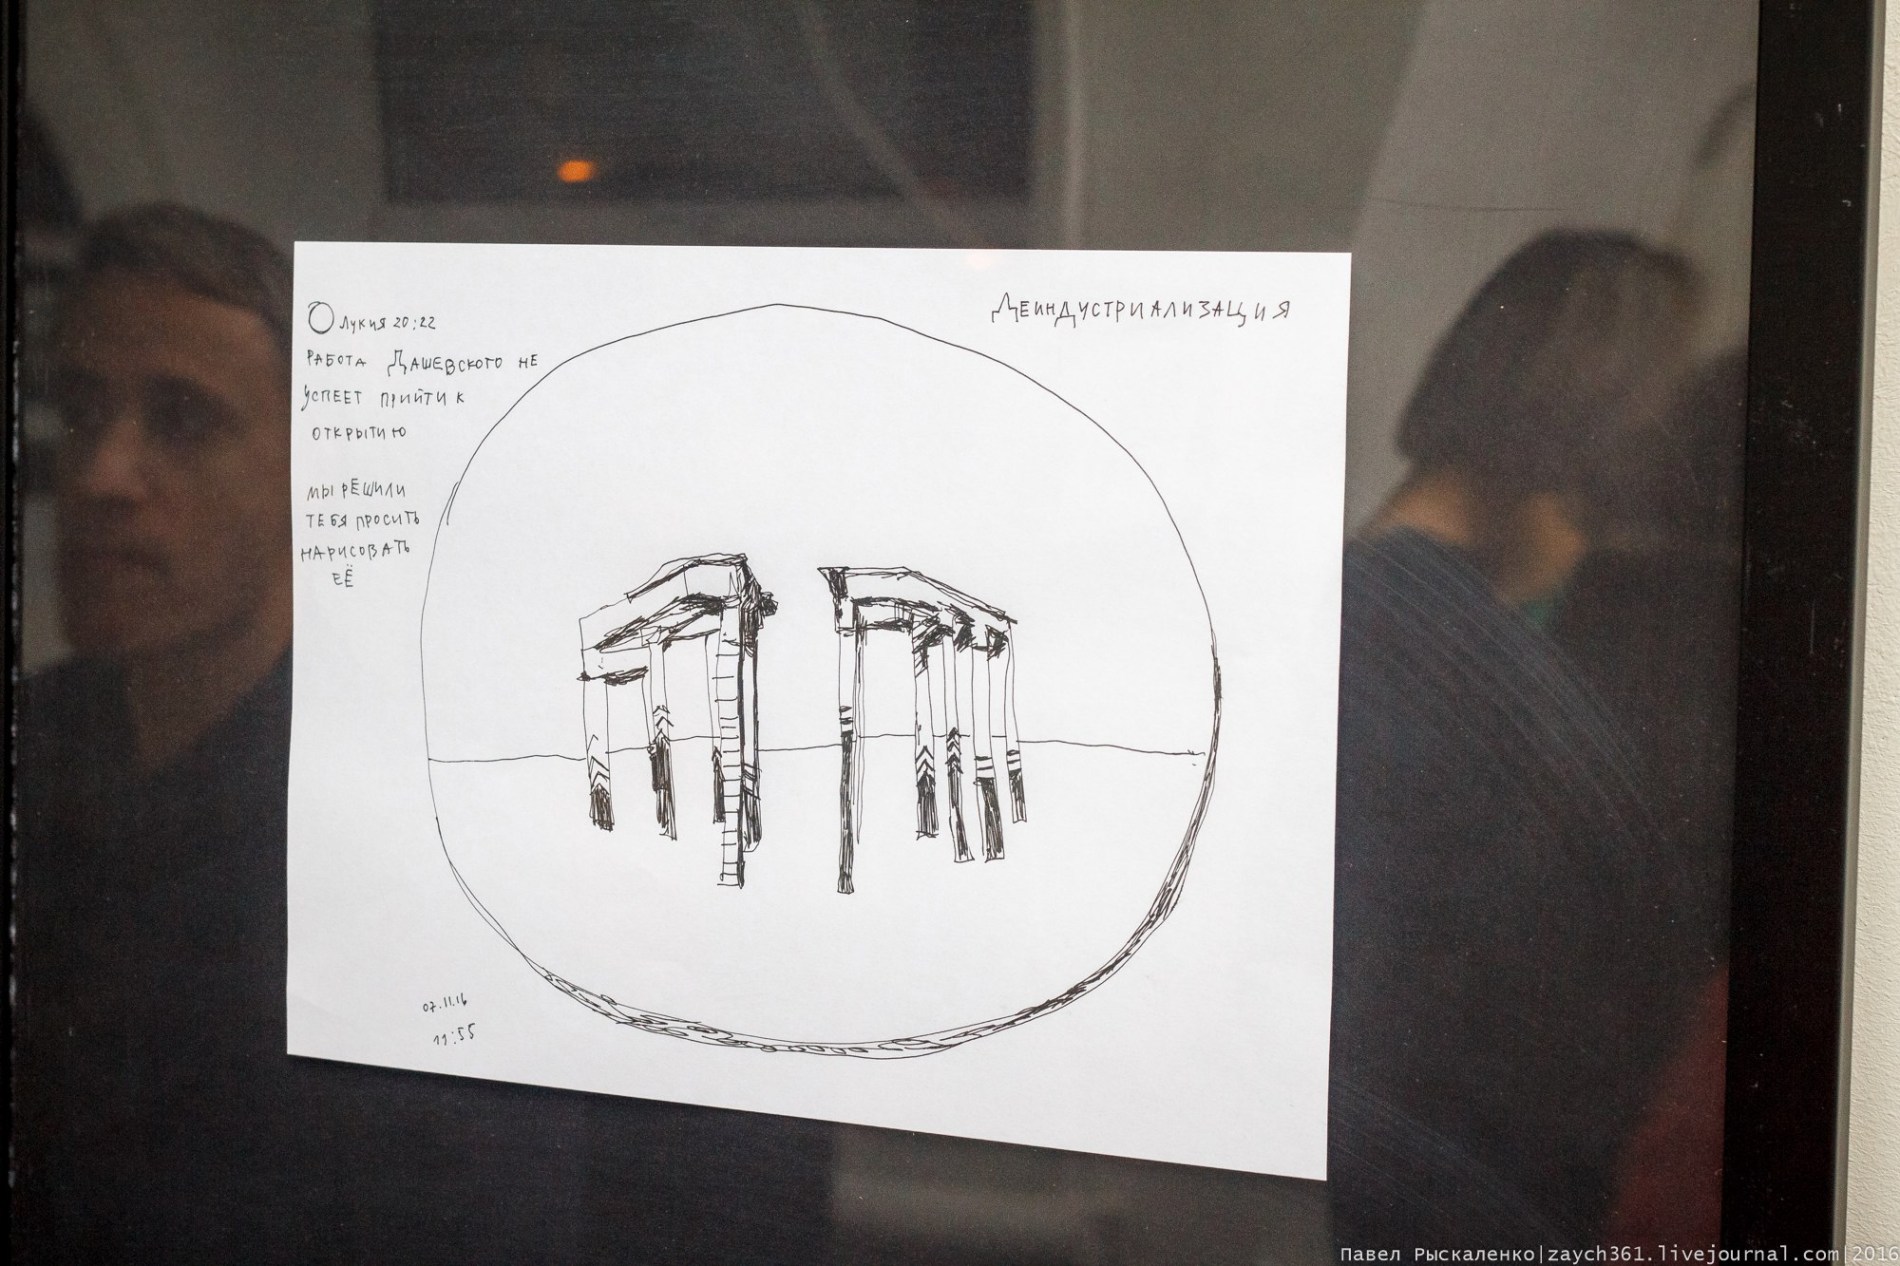 Лукия 20:22
Деиндустриализация
работа Дашевского не
успеет прийти к
открытию
мы решили
тебя просить
нарисовать
её
07.11.16
11:55
Павел Рыскаленко|zaych361.livejournal.com|2016